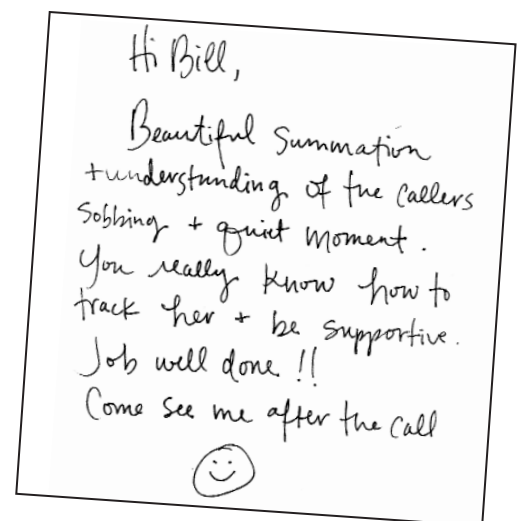 Hi Bill,
Beautiful Summation
+understanding of the callers
Sobbing + quiet moment.
You really know how to
track her + be supportive.
Job well done!!
Come see me after the call